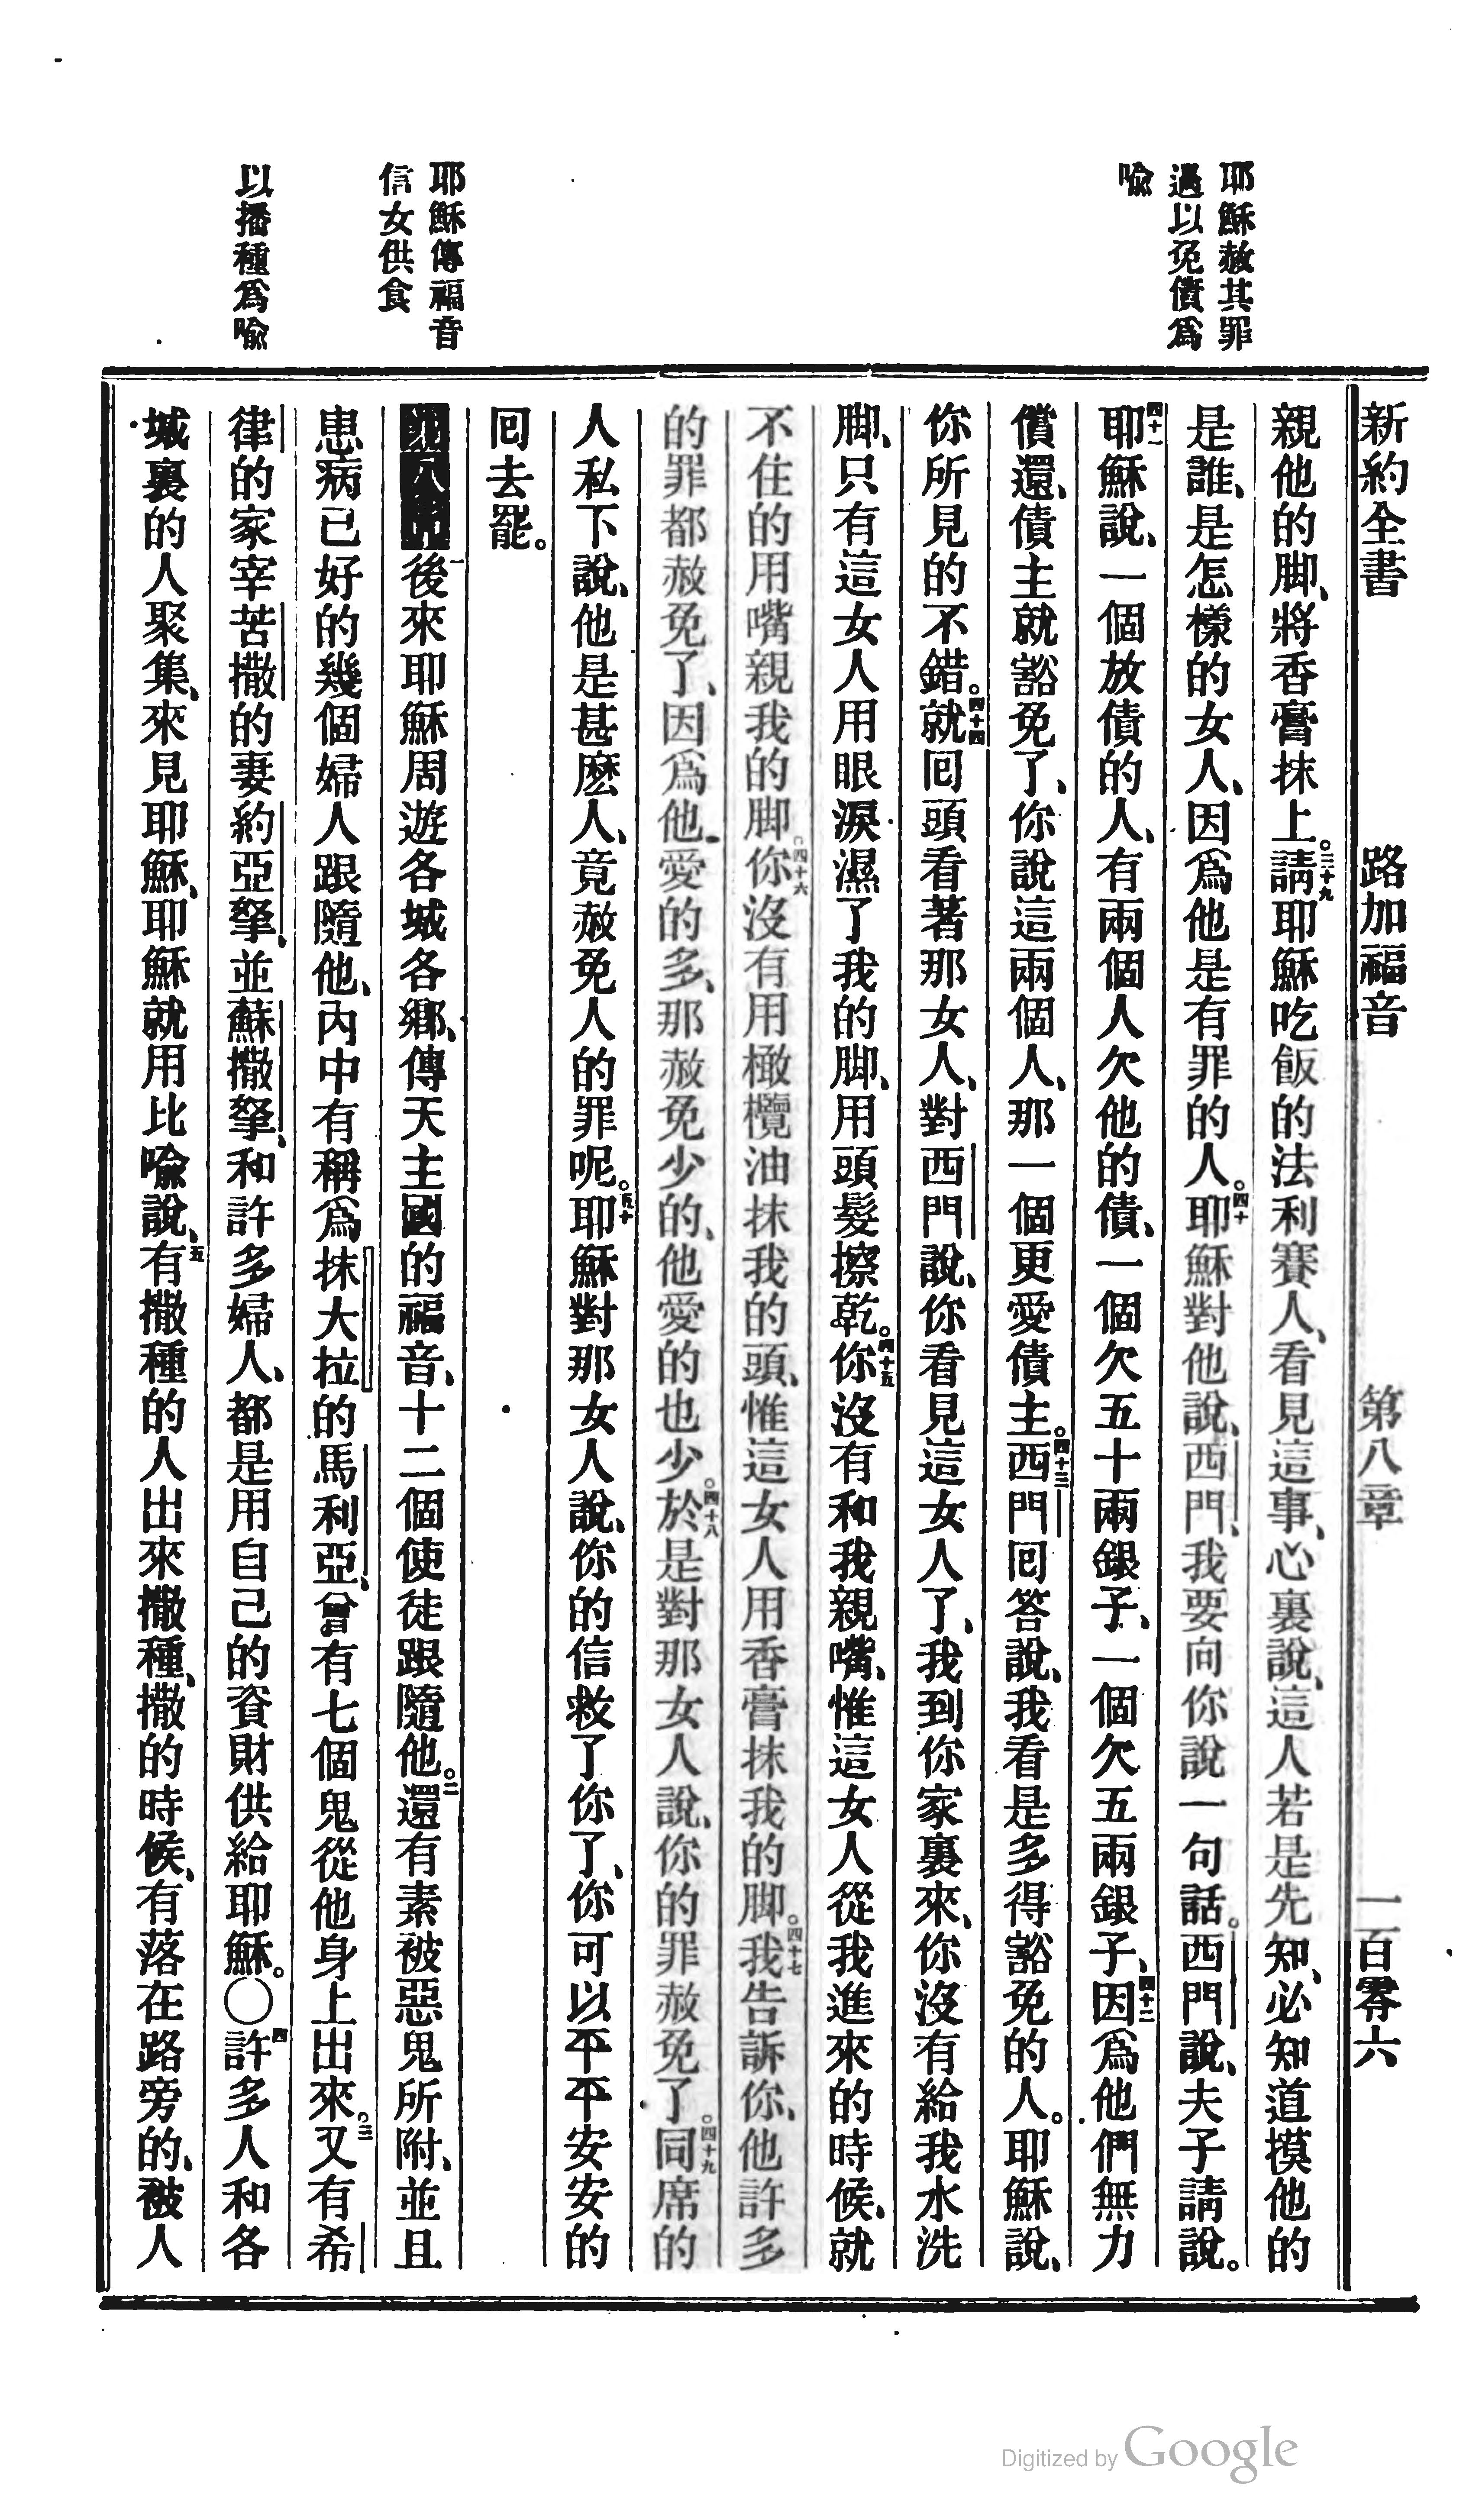 耶穌赦其罪
過以免債爲
喩
耶穌傳福音
信女供食
以播種爲喩
新約全書 路加福音 第八章 一百零六
親他的脚、將香膏抹上。三十九請耶穌吃飯的法利賽人、看見這事、心裏說、這人若是先知、必知道摸他的
是誰、是怎樣的女人、因爲他是有罪的人。四十耶穌對他說、西門、我要向你說一句話。西門說、夫子請說。
四十一耶穌說、一個放債的人、有兩個人欠他的債、一個欠五十兩銀子、一個欠五兩銀子、四十二因爲他們無力
償還、債主就豁免了、你說這兩個人、那一個更愛債主。四十三西門回答說、我看是多得豁免的人。耶穌說、
你所見的不錯。四十四就回頭看著那女人、對西門說、你看見這女人了、我到你家裏來、你沒有給我水洗
脚、只有這女人用眼淚濕了我的脚、用頭髮擦乾。四十五你沒有和我親嘴、惟這女人從我進來的時候、就
不住的用嘴親我的脚。四十六你沒有用橄欖油抹我的頭、惟這女人用香膏抹我的脚。四十七我告訴你、他許多
的罪都赦免了、因爲他愛的多、那赦免少的、他愛的也少。四十八於是對那女人說、你的罪赦免了。四十九同席的
人私下說、他是甚麽人、竟赦免人的罪呢。五十耶穌對那女人說、你的信救了你了、你可以平平安安的
回去罷。
一後來耶穌周遊各城各鄉、傳天主國的福音、十二個使徒跟隨他。二還有素被惡鬼所附、並且
患病已好的幾個婦人跟隨他、內中有稱爲抹大拉的馬利亞、曾有七個鬼從他身上出來。三又有希
律的家宰苦撒的妻約亞拏、並蘇撒拏、和許多婦人、都是用自己的資財供給耶穌。〇四許多人和各
城裏的人聚集、來見耶穌、耶穌就用比喩說、五有撒種的人出來撒種、撒的時候、有落在路旁的、被人
Digitized by Google